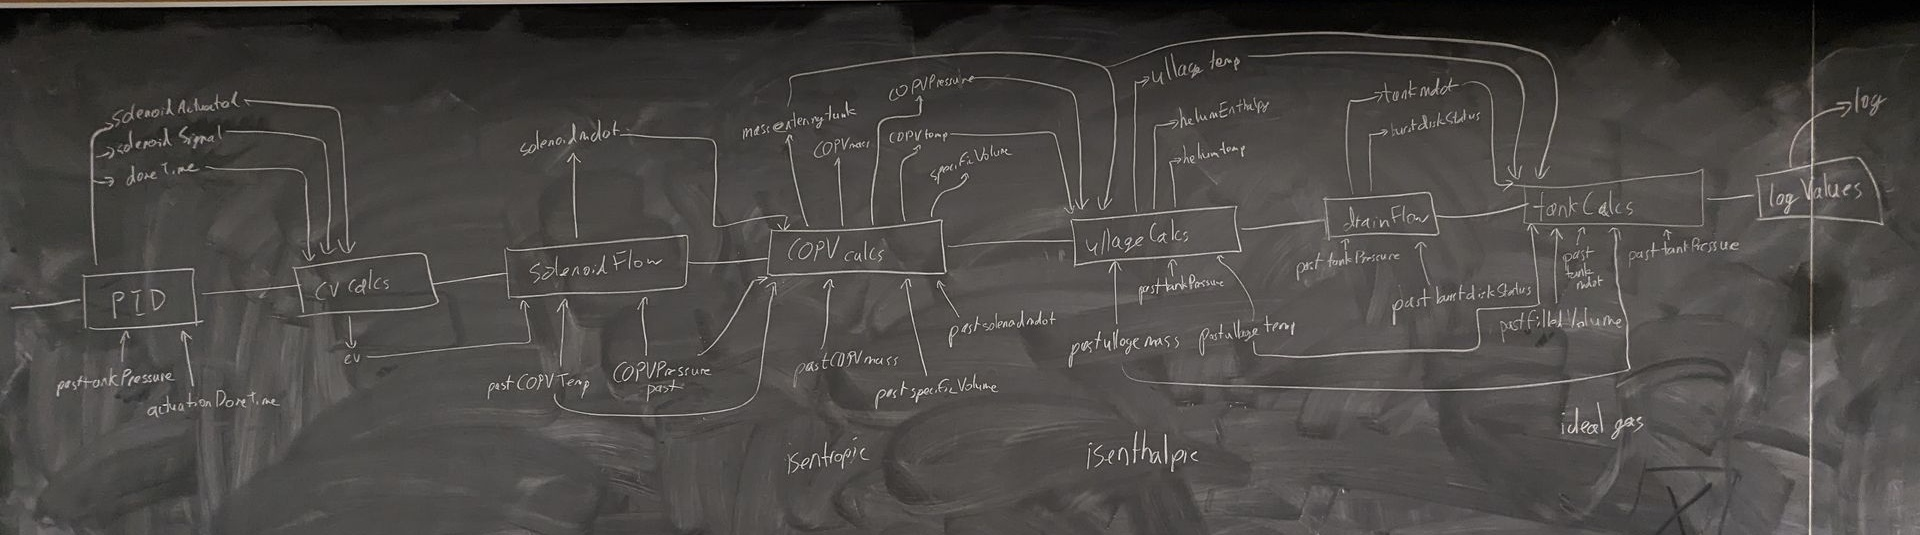 solenoidActuated
solenoid Signal
doneTime
PID
pasttankPressure
actuationDoneTime
CV calcs
cv
solenoidmdot
SolenoidFlow
pastCOPVTemp
COPVPressure
past
massenteringtank
COPVmass
COPVPressure
COPVtemp
specificVolume
COPV calcs
pastCOPVmass
pastspecificVolume
pastsolenoidmdot
isentropic
ullage temp
heliumEnthalpy
heliumtemp
ullageCalcs
pasttankPressure
pastullagemass
pastullage temp
isenthalpic
tankmdot
burstdiskStatus
drainFlow
past tankPressure
pastburstdiskStatus
tankCalcs
past
tank
mdot
pasttankPressure
pastfilledVolume
ideal gas
log
logValues